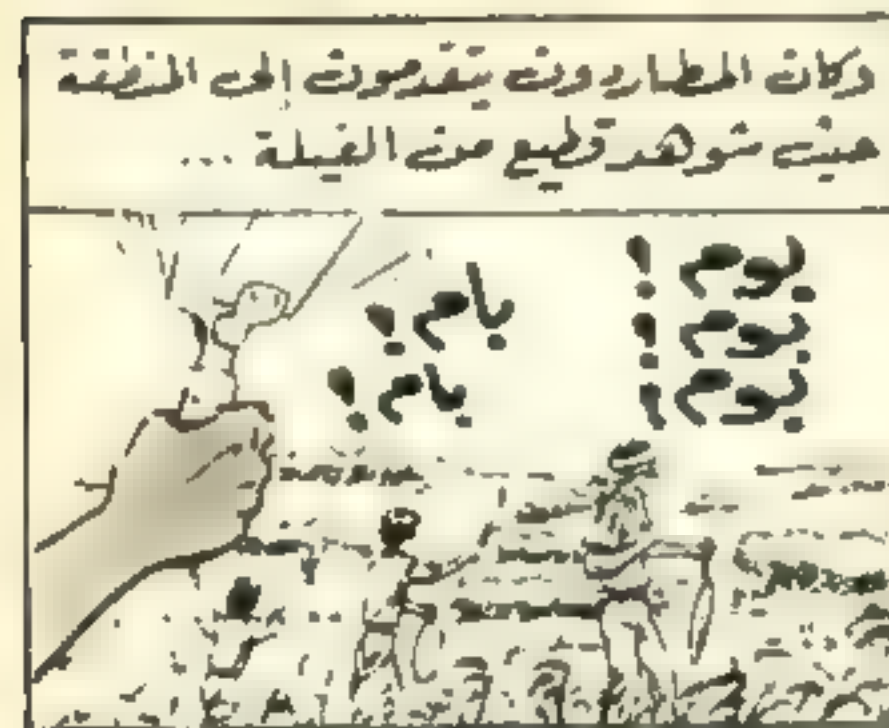 وكان المطاردون يتقدمون إلى المنطقة
حيث شوهد قطيع من الفيلة ...
بوم !
بوم !
بوم !
بام !
بام !